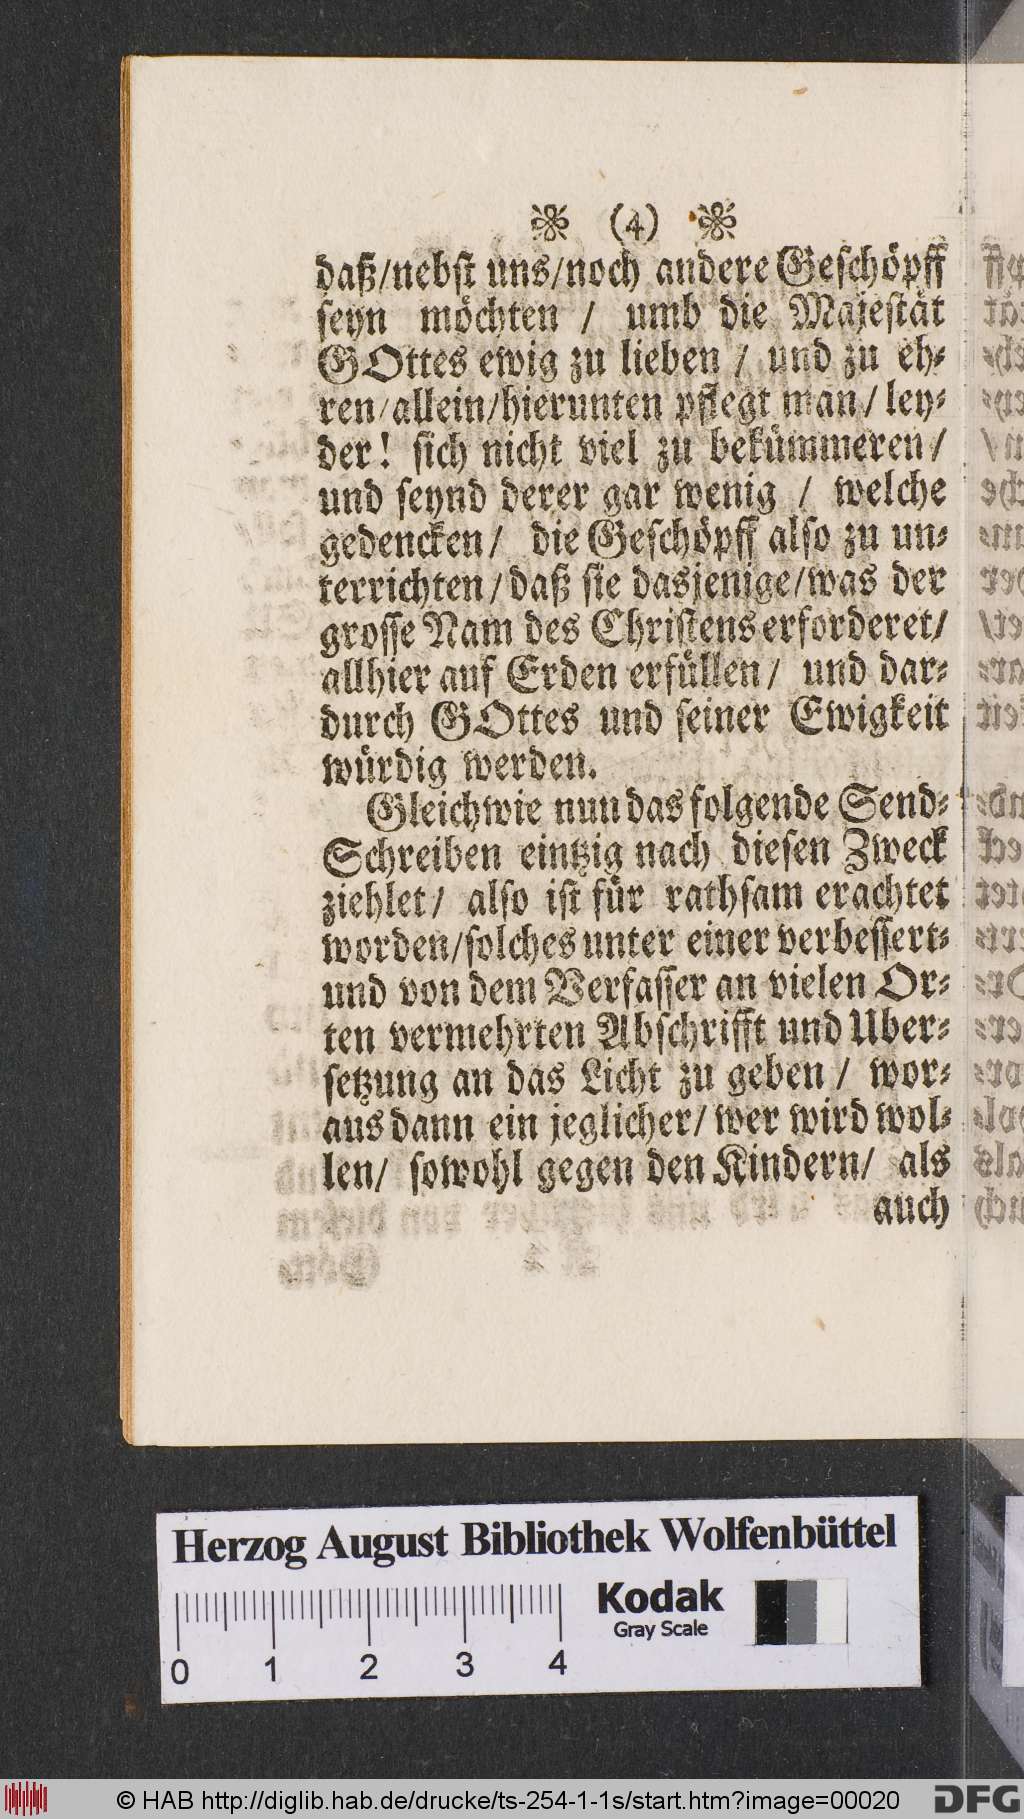 (4)
daß/nebst uns/noch andere Geschöpff
seyn möchten / umb die Majestät
GOttes ewig zu lieben / und zu eh-
ren/allein/hierunten pflegt man/ ley-
der! sich nicht viel zu bekümmeren/
und seynd derer gar wenig / welche
gedencken/ die Geschöpff also zu un-
terrichten/daß sie dasjenige/was der
grosse Nam des Christens erforderet/
allhier auf Erden erfüllen/ und dar-
durch GOttes und seiner Ewigkeit
würdig werden.
Gleichwie nun das folgende Send-
Schreiben eintzig nach diesen Zweck
ziehlet/ also ist für rathsam erachtet
worden/solches unter einer verbessert-
und von dem Verfasser an vielen Or-
ten vermehrten Abschrifft und Uber-
setzung an das Licht zu geben / wor-
aus dann ein jeglicher/ wer wird wol-
len/ sowohl gegen den Kindern/ als
auch
Herzog August Bibliothek Wolfenbüttel
Kodak
Gray Scale
0 1 2 3 4
© HAB http://diglib.hab.de/drucke/ts-254-1-1s/start.htm?image=00020
DFG